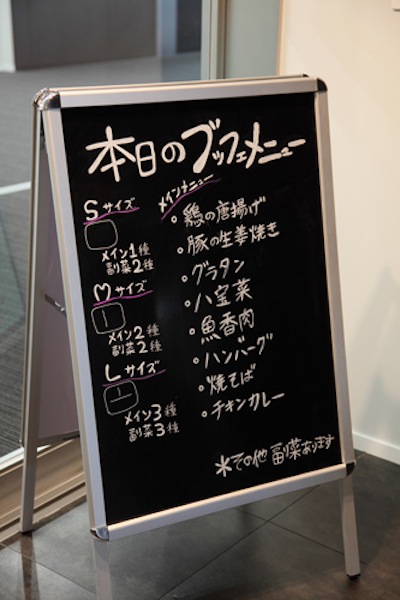 本日のブッフェメニュー
Sサイズ
メイン1種
副菜2種
Mサイズ
メイン2種
副菜2種
Lサイズ
メイン3種
副菜3種
メインメニュー
・鶏の唐揚げ
・豚の生姜焼き
・グラタン
・八宝菜
・魚香肉
・ハンバーグ
・焼そば
・チキンカレー
*その他 副菜あります